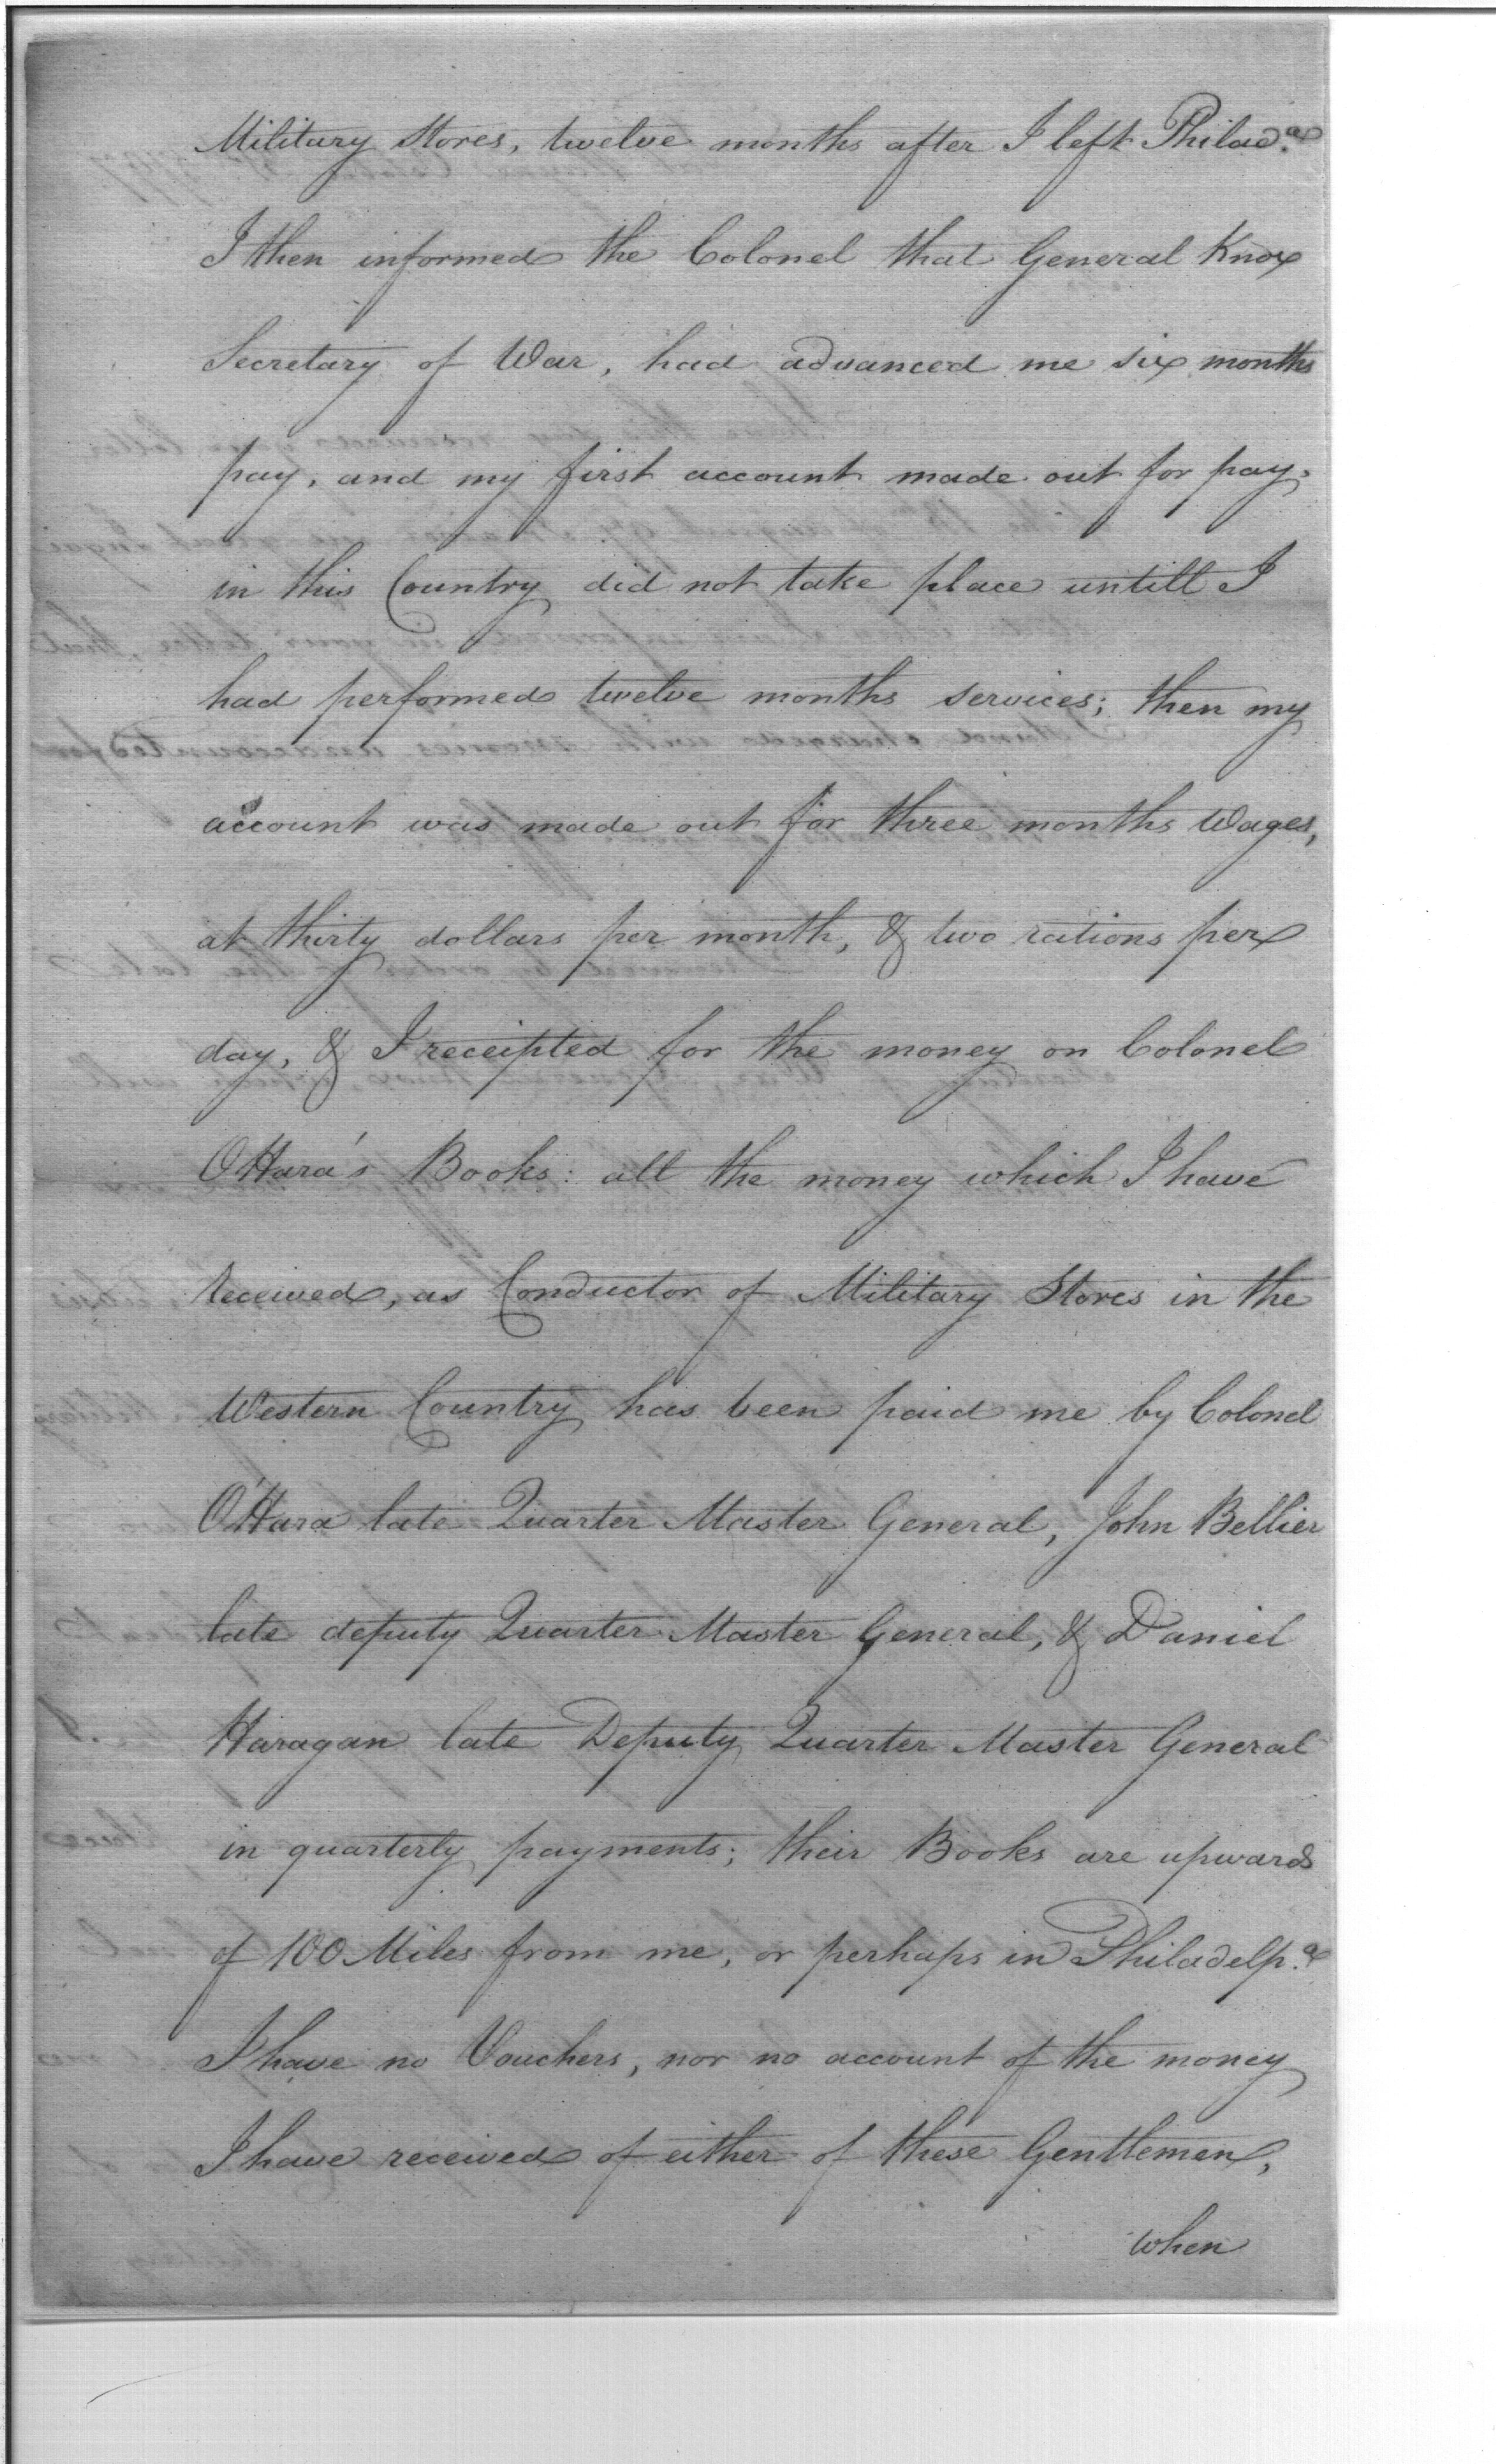 Military Stores, twelve months after I left Philad.a
I then informed the Colonel that General Knox
Secretary of War, had advanced me six months
pay, and my first account made out for pay,
in this Country did not take place untill I
had performed twelve months services; then my
account was made out for three months Wages,
at thirty dollars per month, & two rations per
day, & I receipted for the money on Colonel
OHara's Books: all the money which I have
received, as Conductor of Military Stores in the
Western Country has been paid me by Colonel
O'Hara late Quarter Master General, John Bellier
late deputy Quarter Master General, & Daniel
Haragan late Deputy Quarter Master General
in quarterly payments; their Books are upwards
of 100 Miles from me, or perhaps in Philadelp.a
I have no Vouchers, nor no account of the money
I have received of either of these Gentlemen,
when